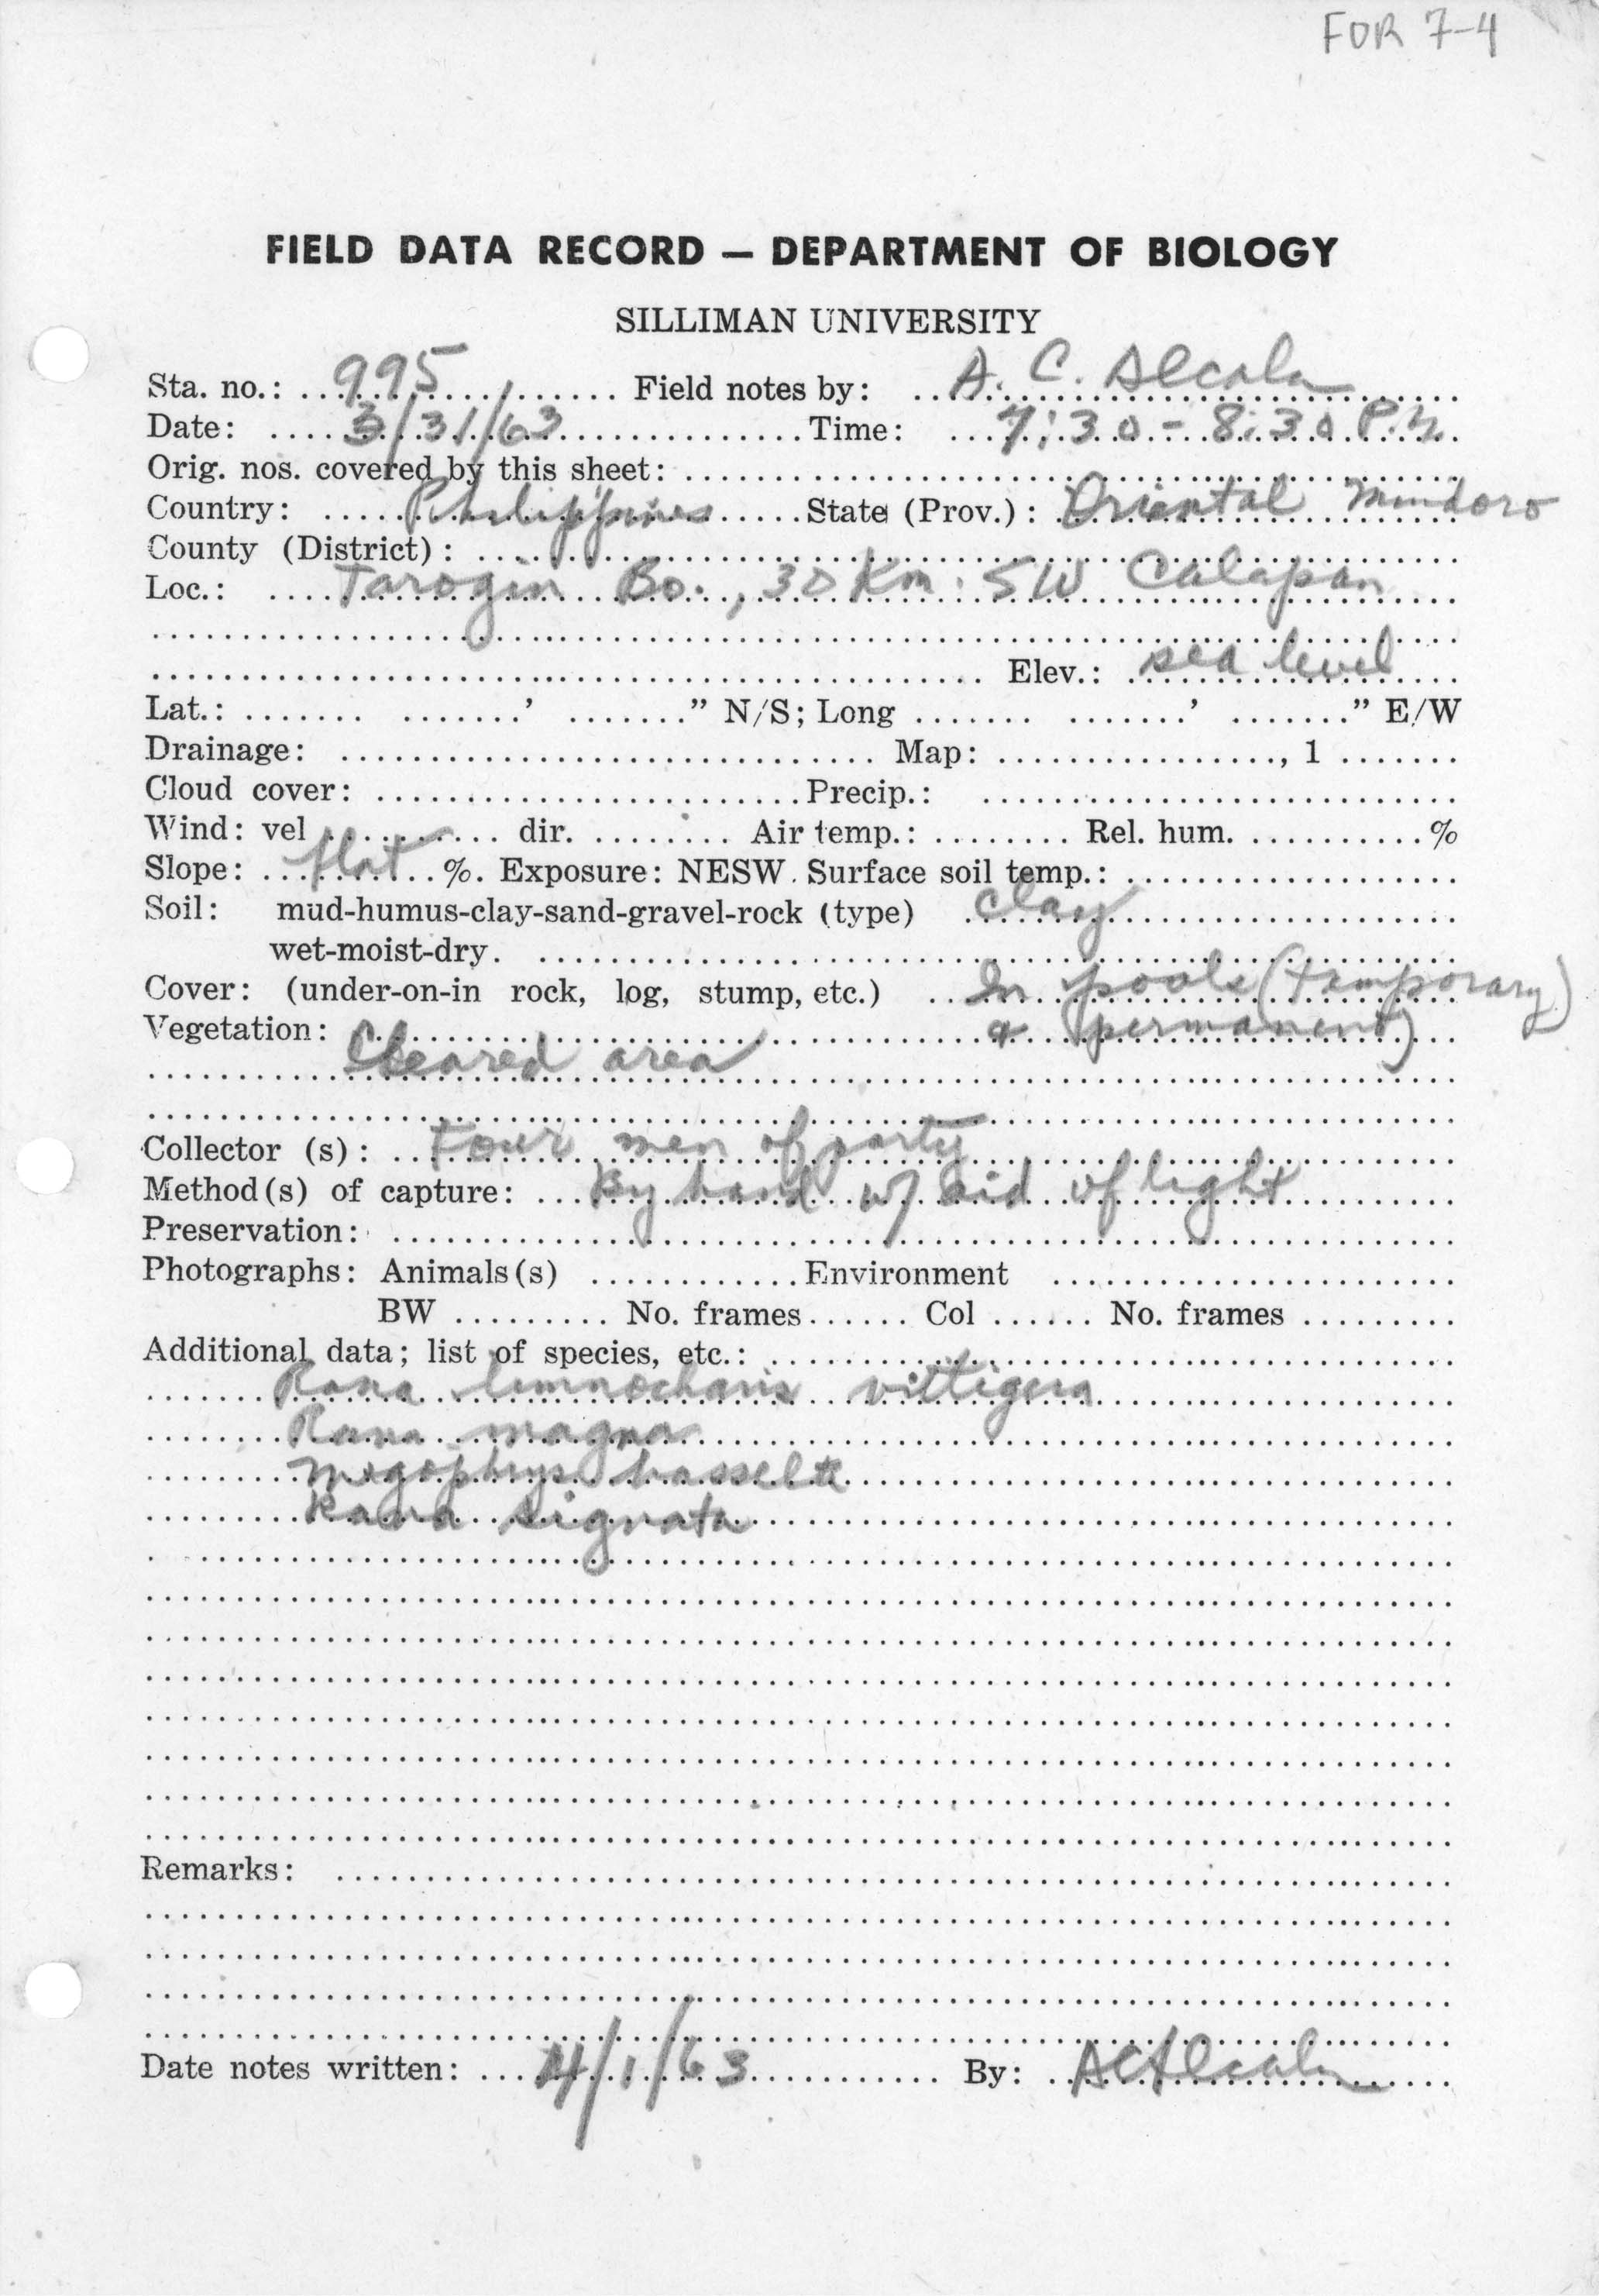 FOR 7-4
FIELD DATA RECORD — DEPARTMENT OF BIOLOGY
SILLIMAN UNIVERSITY
Sta. no.: 995 Field notes by: A. C. Alcala
Date: 3/31/63 Time: 7:30 - 8:30 P.M.
Orig. nos. covered by this sheet:
Country: Philippines State (Prov.): Oriental Mindoro
County (District):
Loc.: Tarogin Bo., 30 Km. SW Calapan
Elev.: sea level
Lat.: ' " N/S; Long ' " E/W
Drainage: Map: , 1
Cloud cover: Precip.:
Wind: vel dir. Air temp.: Rel. hum. %
Slope: flat %. Exposure: NESW. Surface soil temp.:
Soil: mud-humus-clay-sand-gravel-rock (type) clay
wet-moist-dry.
Cover: (under-on-in rock, log, stump, etc.) In pools (temporary
Vegetation: & permanent)
Cleared area
Collector (s): Four men of party
Method(s) of capture: By hand w/ aid of light
Preservation:
Photographs: Animals(s) Environment
BW No. frames Col No. frames
Additional data; list of species, etc.:
Rana limnocharis vittigera
Rana magna
Megophrys hasselti
Rana signata
Remarks:
Date notes written: 4/1/63 By: ACAlcala